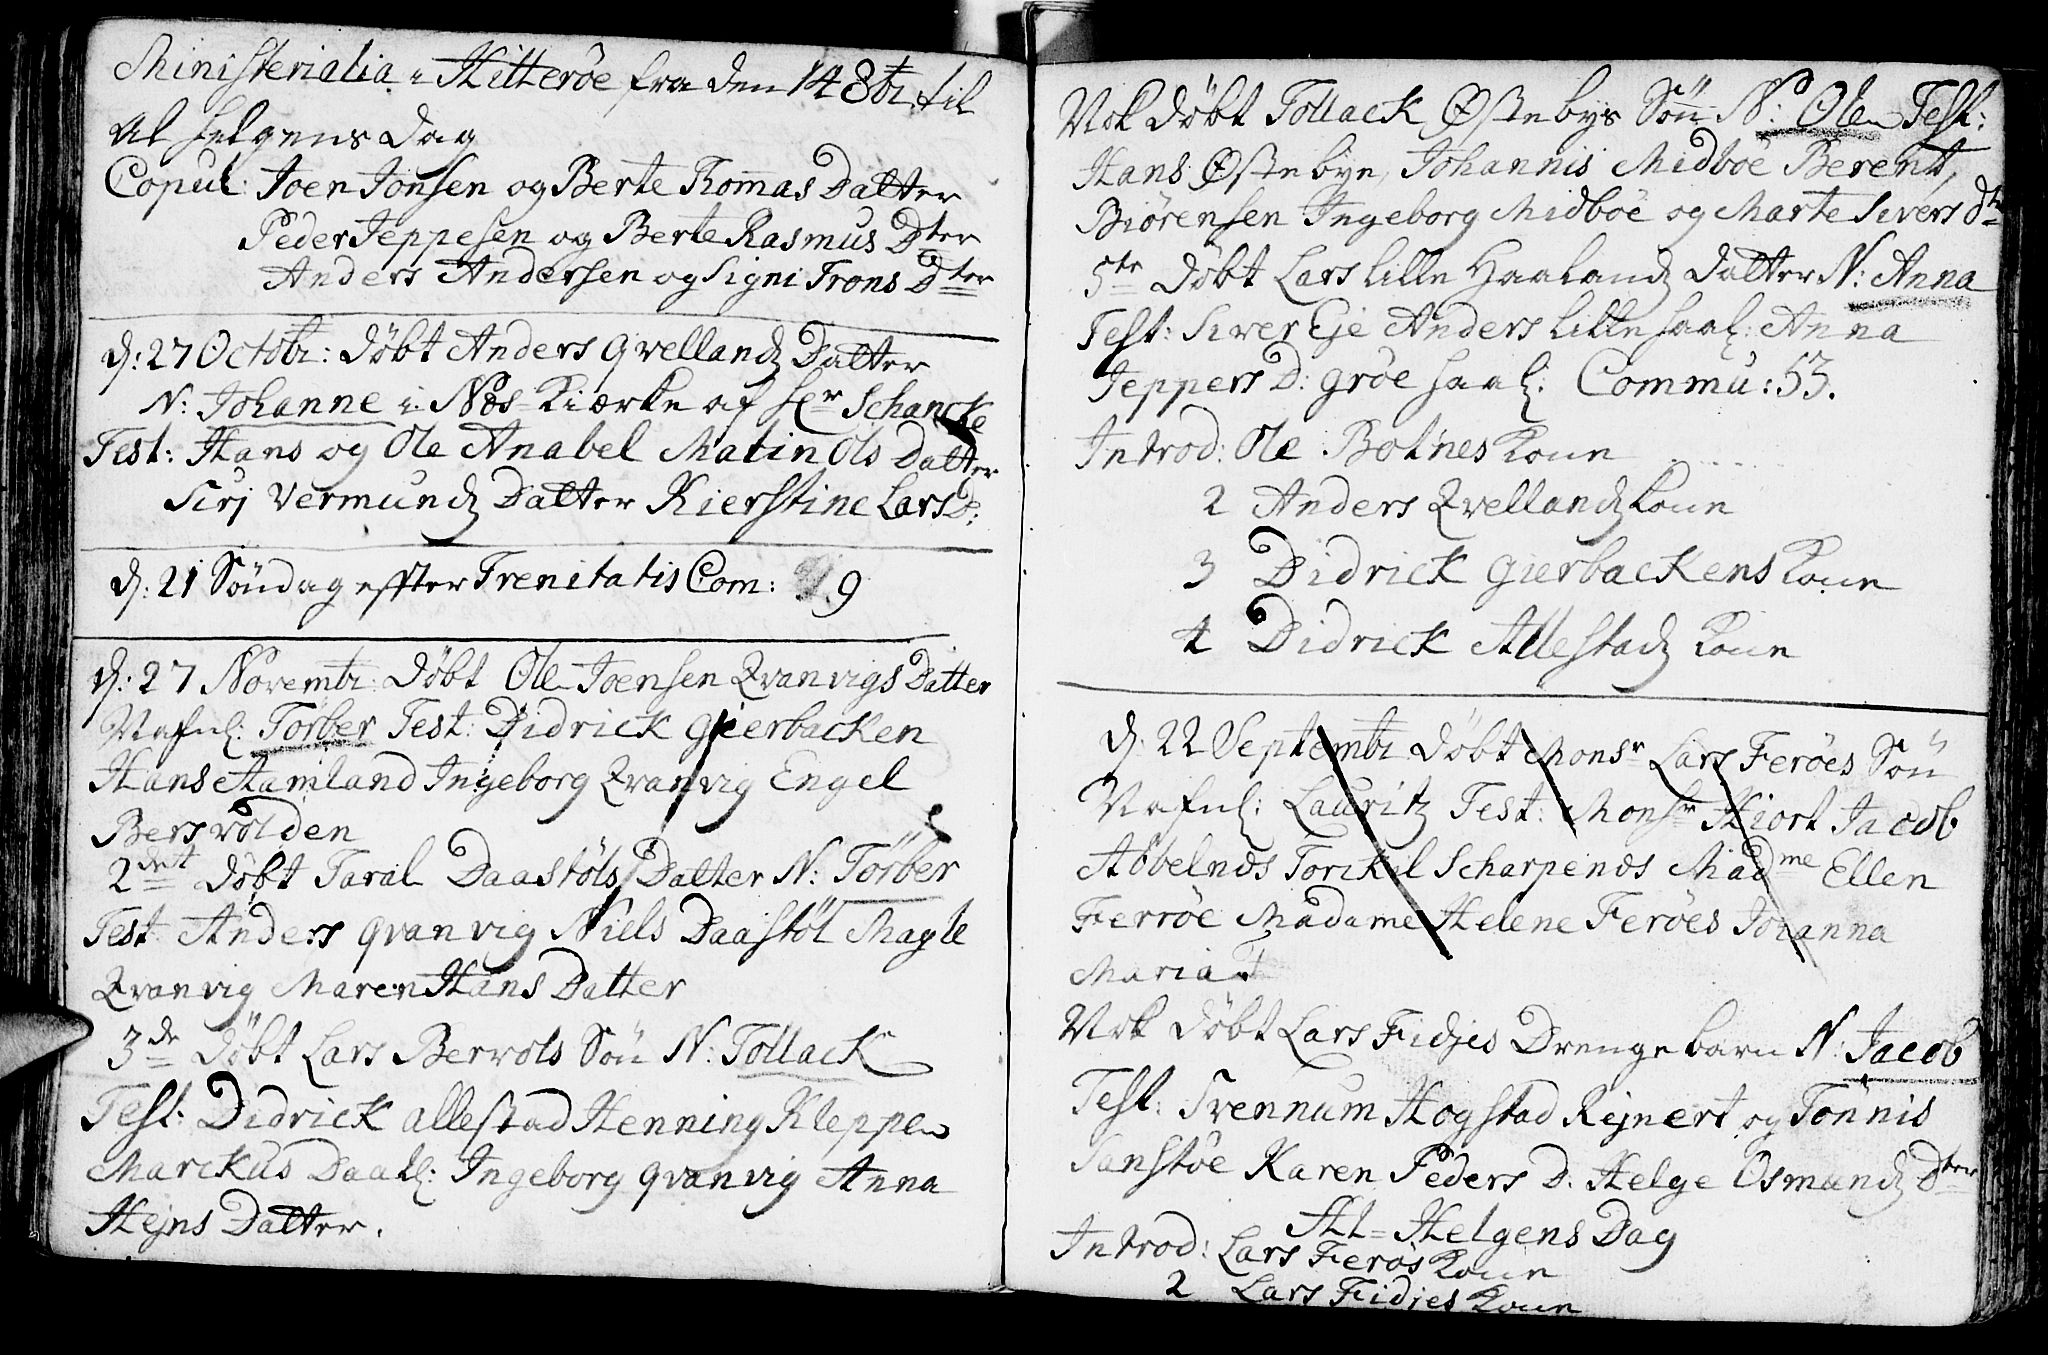 Ministerialia i Hitterøe fra den 14 8br. til
Al helgens Dag
Copul: Joen Jonsen og Berte Tomas Datter
Peder Jeppesen og Berte Rasmus Dter
Anders Andersen og Signi Trons Dter
d: 27 Octobr: døbt Anders qvelland Datter
N: Johanne i Næs-Kiærke af Hr Schancke
Test: Hans og Ole Anabel Malin Ols Datter
Sirj Vermund Datter Kierstine Lars D:
d: 21 Søndag effter Trenitatis Com: 9
d: 27 Novembr: Døbt Ole Joensen Qvanvigs Datter
Nafnl: Torber Test: Didrick gierbacken
Hans Hamland Ingeborg Qvanvig Engel
Bersvolden
2det døbt Taral Daastøls Datter N: Torber
Test: Anders qvanvig Niels Daastøl Magle
Qvanvig Maren Hans Datter
3de døbt Lars Bervols Søn N: Tollack
Test: Didrick allestad Henning Kleppen
Marckus Daatl: Ingeborg qvanvig Anna
Hejns Datter.
Nok døbt Tollack Østebys Søn N: Ole Test:
Hans Østebye, Johannis Midboe Berent
Biørensen Ingeborg Midboe og Marte Sivers dtr
5te Døbt Lars lille Haaland datter N: Anna
Test: Siver Eje Anders lille haal: Anna
Jeppers D: grøe haal: Commu: 53.
Introd: Ole Botnes Kone
2 Anders Qvelland Kone
3 Didrick gierbackens Kone
4 Didrick Allestad Kone
d: 22 Septembr døbt Monsr Lars Ferøes Søn
Nafnl: Lauritz Test: Monsr Hiort Jacob
Støbelnæs Torckil Scharpenæs Madme Ellen
Ferrøe Madame Helene Ferøes Johanna
Maria
Nok døbt Lars Fidjes Drengebarn N: Jacob
Test: Svennum Hogstad Rejnert og Tønnis
Sanstøe Karen Peders D. Helge Osmund Dter
Al-Helgens Dag
Introd: Lars Ferøs Kone
2 Lars Fidjes Kone